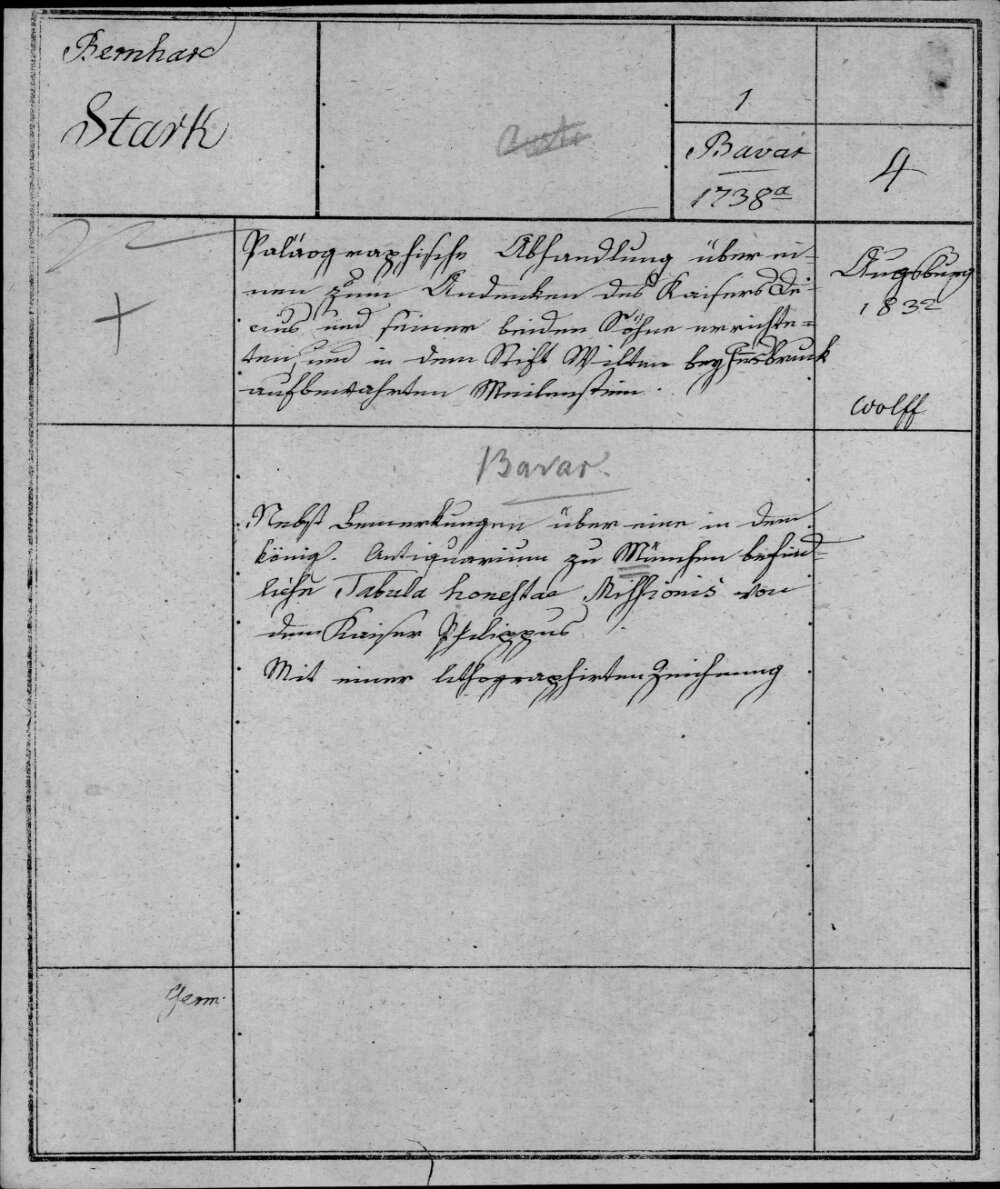 Bernhard
Stark
1
Bavar
1738a
4
Paläographische Abhandlung über ei-
nen zum Andenken des Kaisers De-
cius und seiner beiden Söhne errichte-
ten, und in dem Stift Wilten bey Insbruck
aufbewahrten Meilenstein.
Augsburg
1832
Wolff
Bavar.
Nebst Bemerkungen über eine in dem
könig. Antiquarium zu München befind-
liche Tabula honestae Missionis von
dem Kaiser Philippus.
Mit einer lithographirten Zeichnung
Germ.